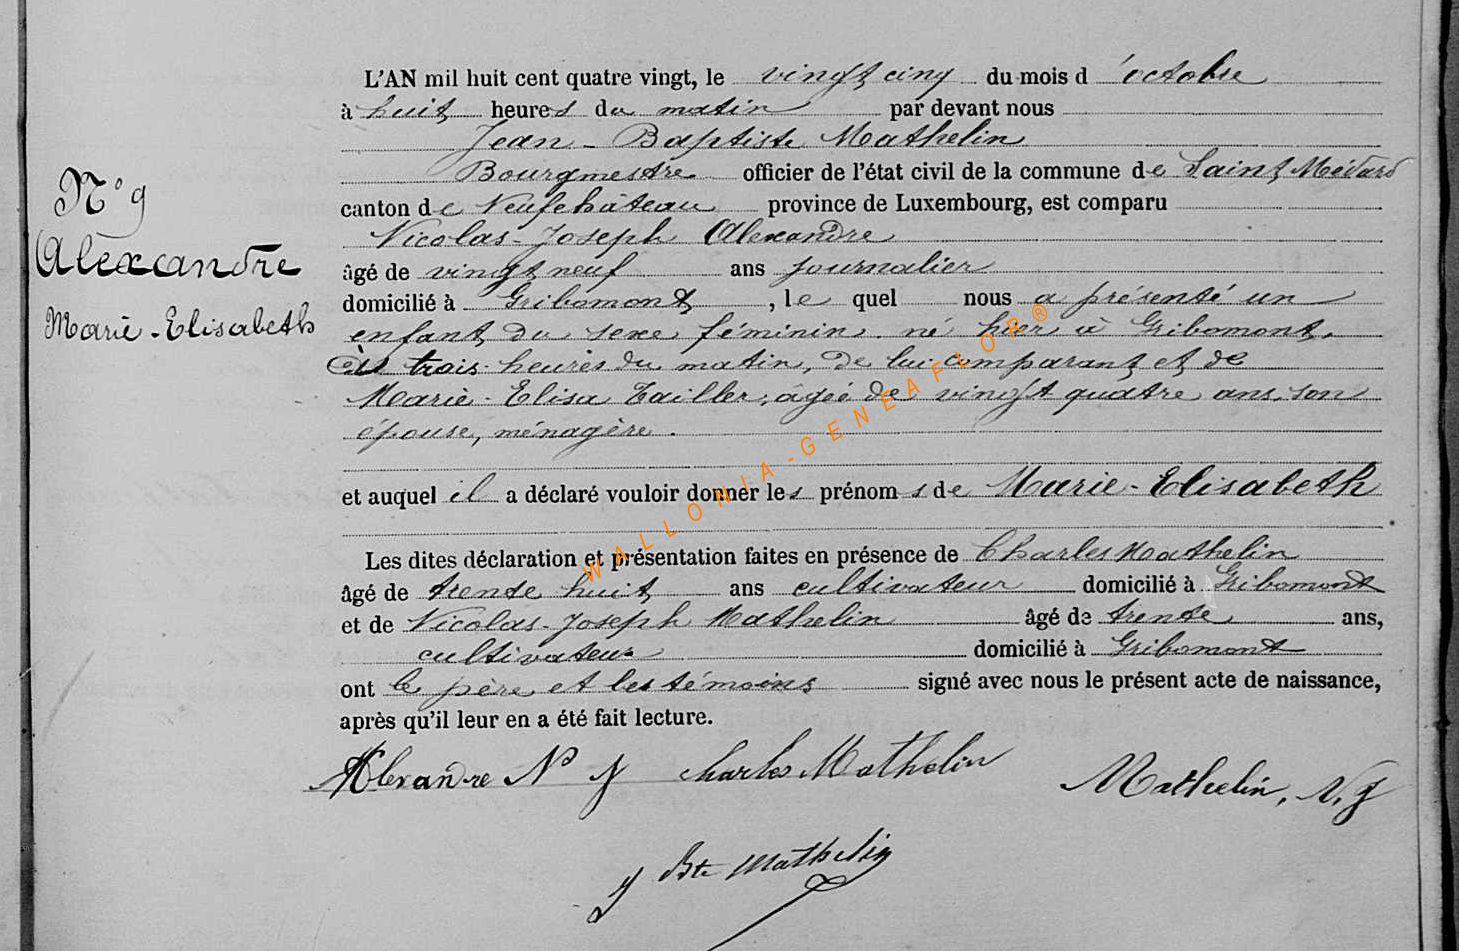 N° 9
Alexandre
Marie-Elisabeth
L'AN mil huit cent quatre vingt, le vingt cinq du mois d'octobre
à huit heures du matin par devant nous
Jean-Baptiste Mathelin
Bourgmestre officier de l'état civil de la commune de Saint Médard
canton de Neufchâteau province de Luxembourg, est comparu
Nicolas-Joseph Alexandre
âgé de vingt neuf ans journalier
domicilié à Gribomont, le quel nous a présenté un
enfant du sexe féminin né hier à Gribomont,
dès trois heures du matin, de lui comparant et de
Marie-Elisa Tailler, âgée de vingt quatre ans, son
épouse, ménagère.
et auquel il a déclaré vouloir donner les prénoms de Marie-Elisabeth
Les dites déclaration et présentation faites en présence de Charles Mathelin
âgé de trente huit ans cultivateur domicilié à Gribomont
et de Nicolas-Joseph Mathelin âgé de trente ans,
cultivateur domicilié à Gribomont
ont le père et les témoins signé avec nous le présent acte de naissance,
après qu'il leur en a été fait lecture.
Alexandre N J Charles Mathelin Mathelin, N. J
J Bte Mathelin
WALLONIA-GENEAFLOR®